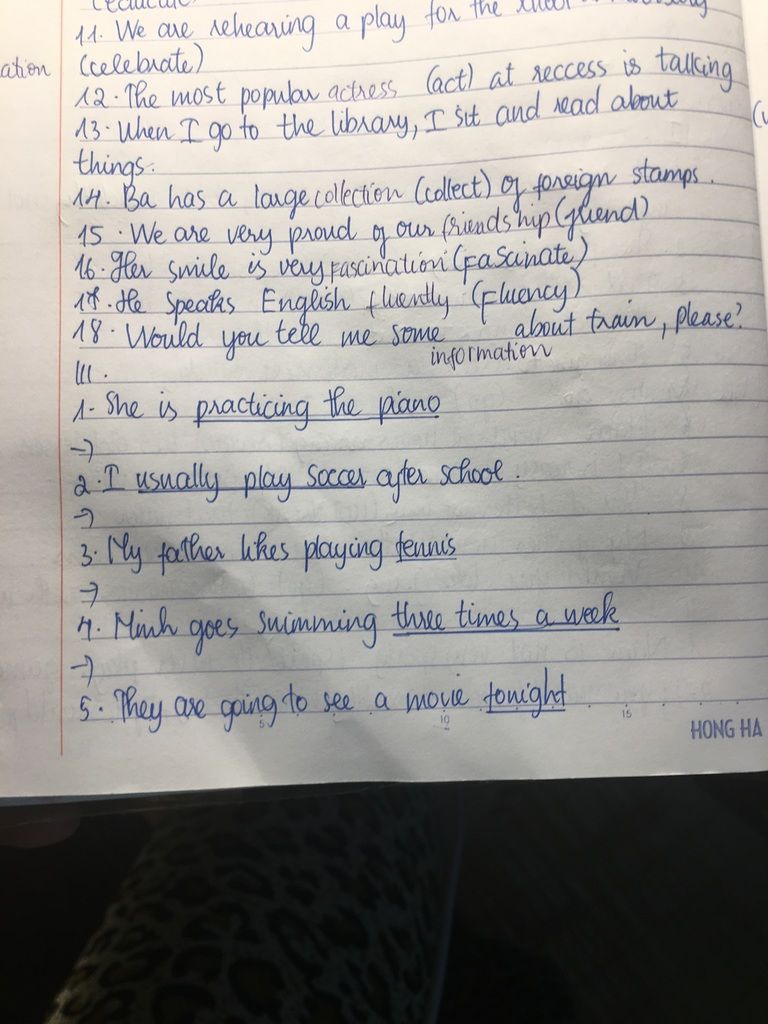 11. We are rehearing a play for the
ation (celebrate)
12. The most popular actress (act) at reccess is talking
13. When I go to the library, I sit and read about
things.
14. Ba has a large collection (collect) of foreign stamps.
15. We are very proud of our friendship (friend)
16. Her smile is very fascination (fascinate)
17. He speaks English fluently (fluency)
18. Would you tell me some about train, please?
information
III.
1. She is practicing the piano
→
2. I usually play soccer after school.
→
3. My father likes playing tennis
→
4. Minh goes swimming three times a week
→
5. They are going to see a movie tonight
5 10 15
HONG HA